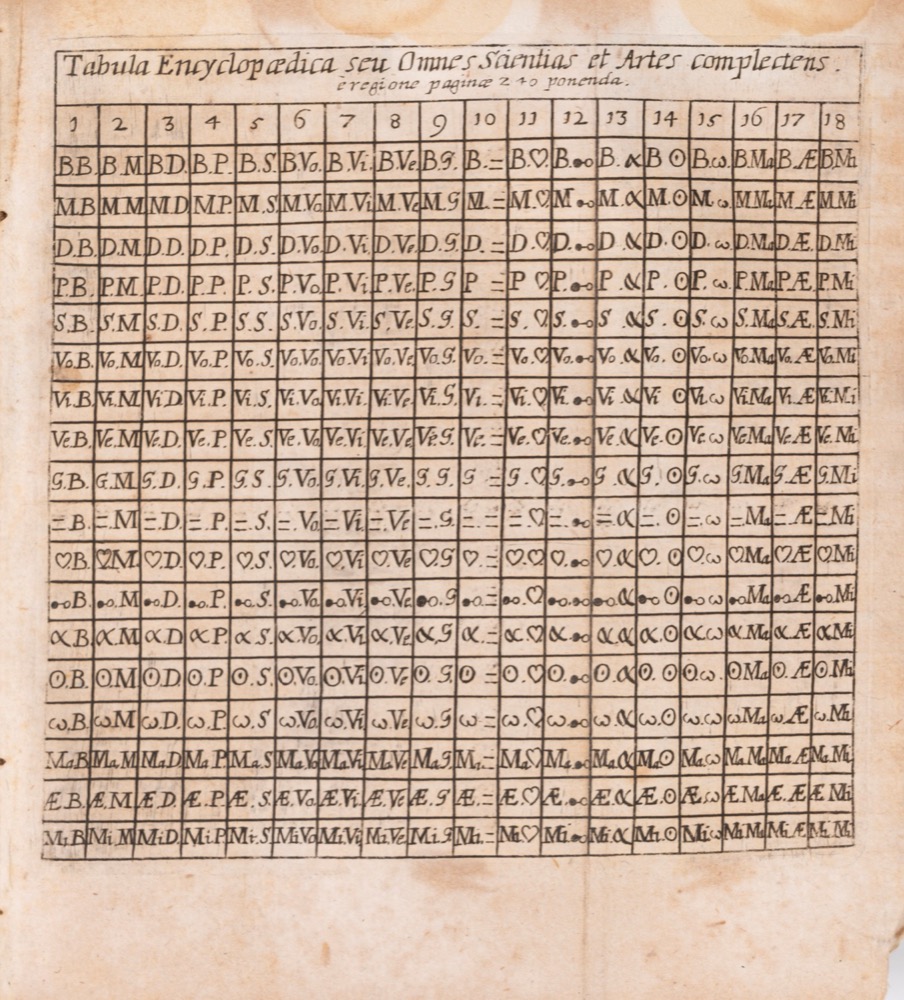 Tabula Encyclopædica seu Omnes Scientias et Artes complectens.
è regione paginæ 240 ponenda.
1 2 3 4 5 6 7 8 9 10 11 12 13 14 15 16 17 18
B.B. B.M B.D. B.P. B.S. B.Vo. B.Vi. B.Ve B.G. B.= B.♡ B.●o B.α B ⊙ B.ω B.Ma B.Æ B.Mi
M.B M.M M.D M.P. M.S M.Vo. M.Vi. M.Ve M.G M.= M.♡ M.●o M.α M.⊙ M.ω M.Ma M.Æ M.Mi
D.B. D.M D.D. D.P. D.S. D.Vo. D.Vi. D.Ve. D.G. D.= D.♡ D.●o D.α D.⊙ D.ω D.Ma D.Æ. D.Mi
P.B. P.M P.D. P.P. P.S. P.Vo. P.Vi. P.Ve. P.G P = P ♡ P.●o P.α P.⊙ P.ω P.Ma P.Æ. P.Mi
S.B. S.M S.D. S.P. S.S. S.Vo. S.Vi. S.Ve. S.G S.= S.♡ S.●o S.α S.⊙ S.ω S.Ma S.Æ. S.Mi
Vo.B. Vo.M Vo.D. Vo.P Vo.S Vo.Vo. Vo.Vi Vo.Ve. Vo.G. Vo.= Vo.♡ Vo.●o Vo.α Vo.⊙ Vo.ω Vo.Ma Vo.Æ Vo.Mi
Vi.B. Vi.M. Vi.D. Vi.P. Vi.S. Vi.Vo. Vi.Vi. Vi.Ve Vi.G. Vi.= Vi.♡ Vi.●o Vi.α Vi ⊙ Vi.ω Vi.Ma Vi.Æ Vi.Mi
Ve.B. Ve.M Ve.D. Ve.P. Ve.S. Ve.Vo Ve.Vi Ve.Ve Ve.G. Ve.= Ve.♡ Ve.●o Ve.α Ve.⊙ Ve.ω Ve.Ma Ve.Æ Ve.Mi
G.B. G.M. G.D. G.P. G.S G.Vo. G.Vi G.Ve. G.G. G = G.♡ G.●o G.α G.⊙ G.ω G.Ma G.Æ G.Mi
=.B. =.M =.D. =.P. =.S. =.Vo. =.Vi =.Ve =.G. =.= =.♡ =.●o =.α =.⊙ =.ω =.Ma =.Æ =.Mi
♡.B. ♡M ♡.D ♡.P. ♡.S ♡.Vo. ♡.Vi ♡.Ve ♡.G ♡.= ♡.♡ ♡.●o ♡.α ♡.⊙ ♡.ω ♡.Ma ♡.Æ ♡.Mi
●o.B. ●o.M ●o.D. ●o.P. ●o.S. ●o.Vo. ●o.Vi. ●o.Ve ●o.G ●o.= ●o.♡ ●o.●o ●o.α ●o.⊙ ●o.ω ●o.Ma ●o.Æ ●o.Mi
α.B. α.M α.D α.P α.S. α.Vo. α.Vi. α.Ve α.G α.= α.♡ α.●o α.α α.⊙ α.ω α.Ma α.Æ α.Mi
⊙.B. ⊙.M ⊙.D. ⊙.P ⊙.S ⊙.Vo. ⊙.Vi ⊙.Ve ⊙.G. ⊙.= ⊙.♡ ⊙.●o ⊙.α ⊙.⊙ ⊙.ω ⊙.Ma ⊙.Æ ⊙.Mi
ω.B. ω.M ω.D. ω.P. ω.S ω.Vo ω.Vi ω.Ve ω.G ω.= ω.♡ ω.●o ω.α ω.⊙ ω.ω. ω.Ma ω.Æ ω.Mi
Ma.B Ma.M Ma.D Ma.P Ma.S Ma.Vo Ma.Vi Ma.Ve. Ma.G Ma.= Ma.♡ Ma.●o Ma.α Ma.⊙ Ma.ω Ma.Ma Ma.Æ Ma.Mi
Æ.B. Æ.M Æ.D. Æ.P Æ.S. Æ.Vo Æ.Vi. Æ.Ve Æ.G Æ.= Æ.♡ Æ.●o Æ.α Æ.⊙ Æ.ω Æ.Ma Æ.Æ Æ.Mi
Mi.B Mi.M Mi.D. Mi.P. Mi.S Mi.Vo Mi.Vi Mi.Ve Mi.G Mi.= Mi♡ Mi.●o Mi.α Mi.⊙ Mi.ω Mi.Ma Mi.Æ Mi.Mi